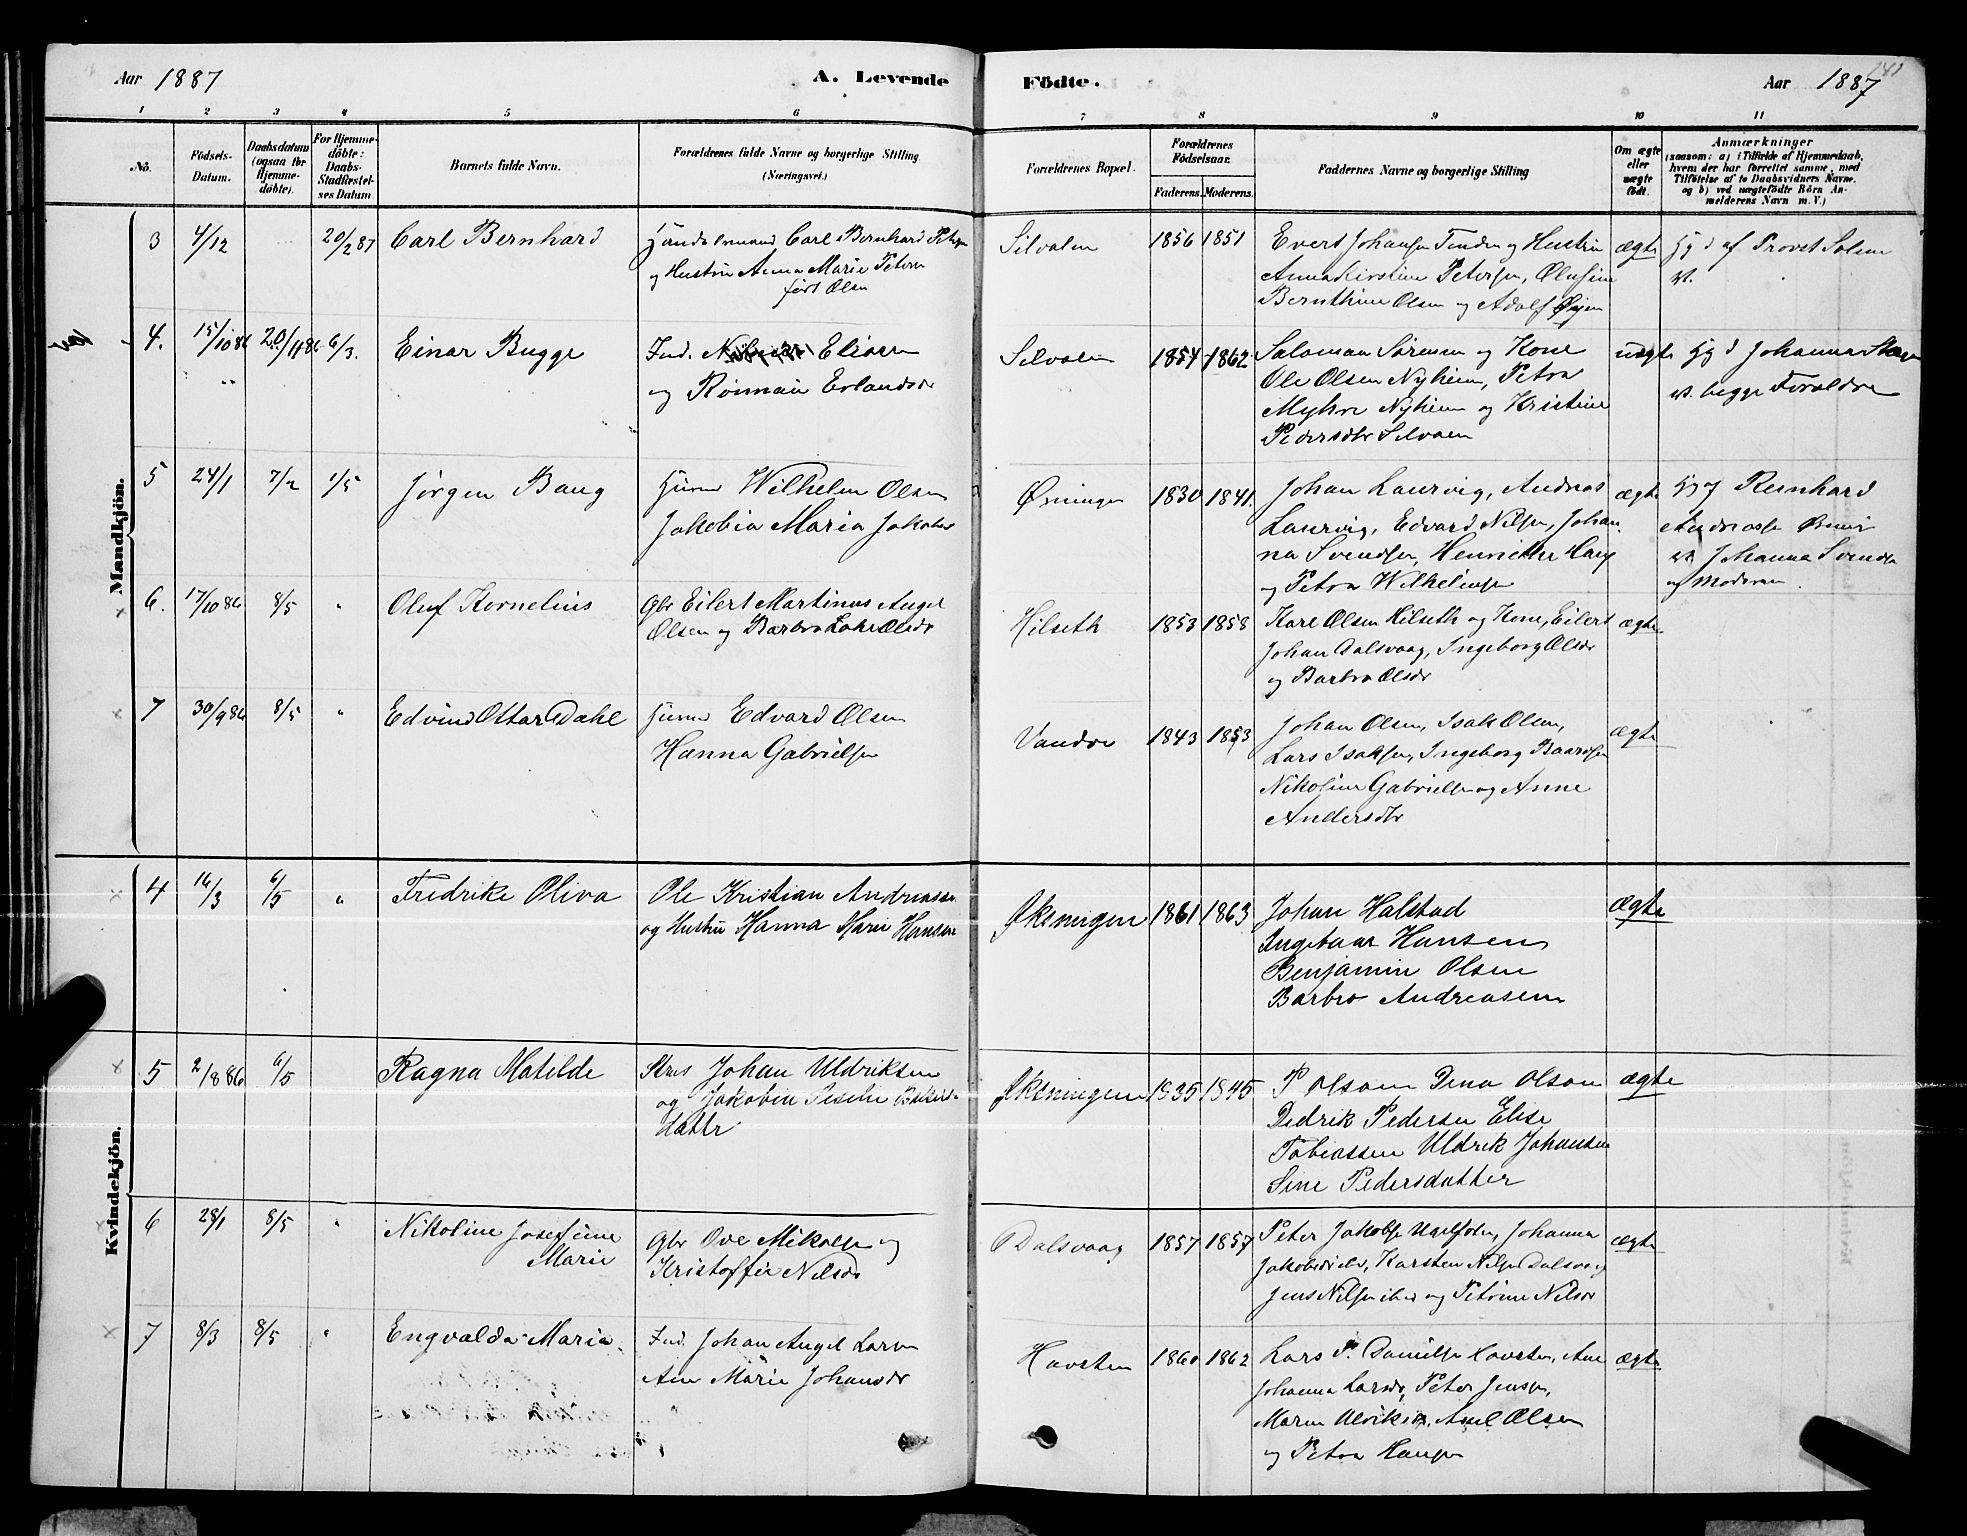 Aar 1887
A. Levende Födte.
Aar 1887
141
1 2 3 4 5 6 7 8 9 10 11
No.
Födsels-Datum.
Daabsdatum (ogsaa for Hjemme-döbte).
For Hjemme-döbte: Daabs-Stadfæstel-ses Datum
Barnets fulde Navn.
Forældrenes fulde Navne og borgerlige Stilling. (Næringsvei.)
Forældrenes Bopæl.
Forældrenes Födselsaar.
Faderens. Moderens.
Faddernes Navne og borgerlige Stilling
Om ægte eller uægte födt.
Anmærkninger
(saasom: a) i Tilfælde af Hjemmedaab,
hvem der har forrettet samme, med
Tilföielse af to Daabsvidners Navne.
og b) ved uægtefödte Börn An-
melderens Navn m. V.)
Mandkjön.
3 4/12 20/2 87 Carl Bernhard
Handelsmand Carl Bernhard Peters
og Hustru Anna Marie Petersen
født Olsen
Silvalen 1856 1851
Evert Johansen Tenden og Hustru
Anna Kirstine Petersen, Olufine
Bernthine Olsen og Adolf Øyen
ægte
Hjd af Provst Solem
4. 15/10 86 20/11 86 6/3. Einar Bugge
Ind. Eliasen
og Erlandsdr
Selvalen 1854 1862
Salomon Sørensen og Kone
Ole Olsen Nyheim, Petra
Myhre Nyheim og Kristine
Pedersdtr Selvaen
uægte
Hjd Johanna
v. begge Forældre
5 24/1 7/2 1/5 Jörgen Baug
Husmd Wilhelm Olsen
Jakobia Maria Jakobs
Øxninge 1830 1841.
Johan Laurvig, Andreas
Laurvig, Edvard Nilsen, Johan
na Svendsen, Henriethe Haug
og Petra Wilhelmsen
ægte
Hjd Reinhard
Johanna Svends
og Moderen
6. 17/10 86 8/5 " Oluf Kornelius
Gbr Eilert Martinus Angel
Olsen og Barbro Olsdr
Hilseth 1853 1858
Karl Olsen Hilseth og Kone, Eilert
Johan Dalsvaag, Ingeborg Olsdr
og Barbro Olsdr
ægte
7 30/9 86 8/5 " Edvind Ottar Dahl
Husmd Edvard Olsen
Hanna Gabrielsen
Vandve 1843 1853
Johan Olsen, Isak Olsen,
Lars Isaksen, Ingeborg Baardsen
Nikoline Gabrielsen og Anne
Andersdtr
ægte
Kvindekjön.
4 16/3 6/5 " Fredrike Oliva
Ole Kristian Andreassen
og Hustru Hanna Marie Hansen
Øksningen 1861 1863
Johan Halstad
Ingebaar Hansen
Benjamin Olsen
Barbro Andreasen
ægte
5 2/8 86 6/5 Ragna Matilde
Johan Uldriksen
og Jakobine
datter
Øksningen 1835 1845
P Olsen Dina Olsen
Didrik Pedersen Elise
Tobiassen Uldrik Johansen
Sine Pedersdatter
ægte
6 28/1 8/5 " Nikoline Josefine
Marie
Gbr Ove Mikalsen og
Kristoffie Nilsdr
Dalsvaag 1857 1857
Peter Jakobsen, Johanna
Karsten Nilsen Dalsvaag
Jens Nilsen ibid og Petrine Nilsdr
ægte
7 8/3 8/5 " Engvalda Maria.
Ind. Johan Angel Larsen
Ane Marie Johansdr
Havsten 1860 1862
Lars P. Danielsen Havsten, Ane
Johanna Larsdr, Peter Jensen,
Maren Ulriksen, Axel Olsen
og Petra Hansen
ægte